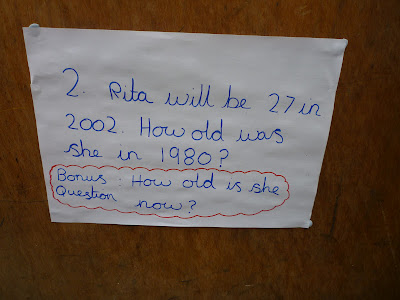 2. Rita will be 27 in
2002. How old was
she in 1980?
Bonus : How old is she
Question now?